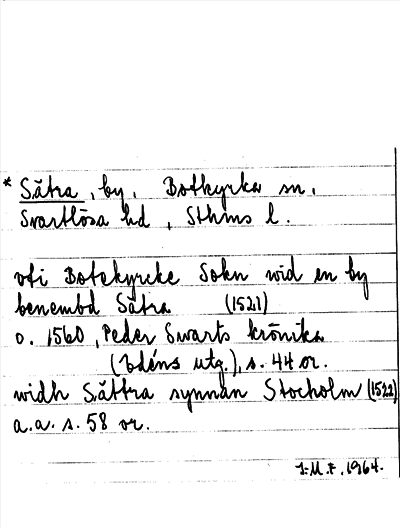 * Sätra, by, Botkyrka sn,
Svartlösa hd, Sthms l.
vti Botekyrcke Sokn wid en by
benembd Sätra (1521)
o. 1560, Peder Swarts krönika
(Edéns utg.), s. 44 or.
widh Sättra synnan Stocholm (1522)
a.a. s. 58 or.
J.M.F. 1964.